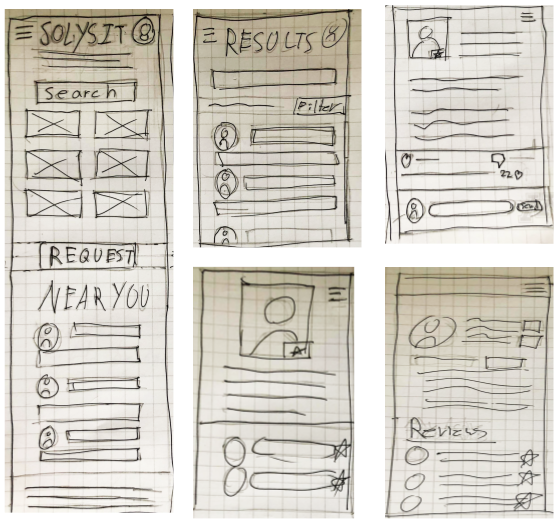 SOLYSIT
Search
REQUEST
NEAR YOU
RESULTS
Filter
22
Send
Reviews